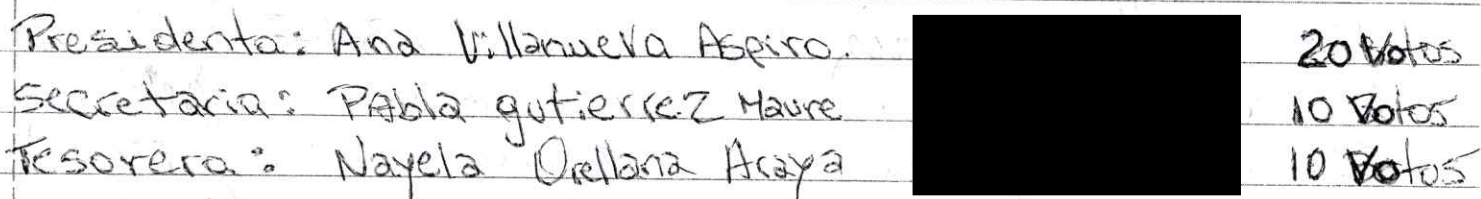 Presidenta: Ana Villanueva Aspiro. 20 Votos
Secretaria: Pabla gutierrez Maure 10 Votos
Tesorera: Nayela Orellana Araya 10 Votos